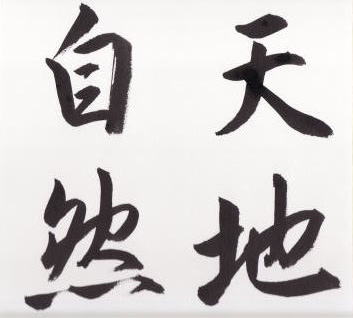 天地
自然